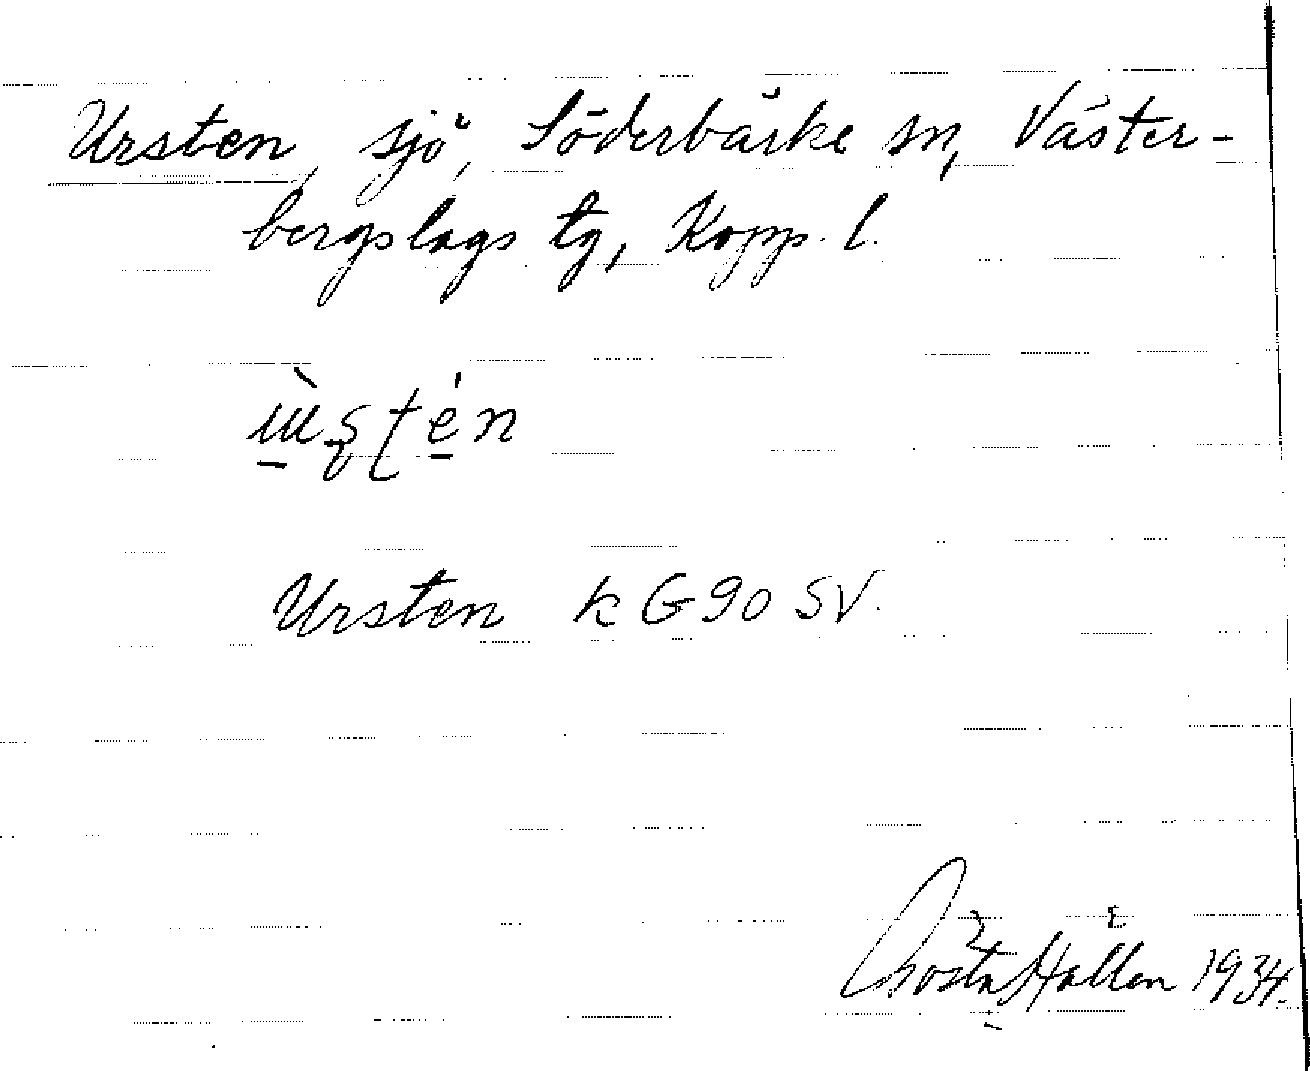 Ursten, sjö, Söderbärke sn, Väster-
bergslags tg, Kopp. l.
Ursten k G 90 SV.
Gösta Hallén 1934.